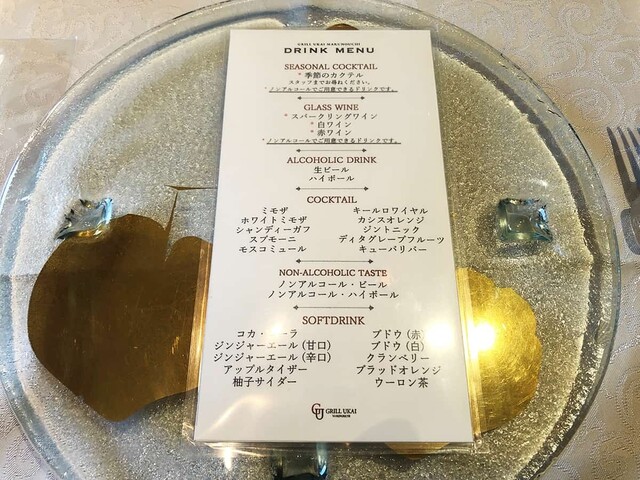 GRILL UKAI MARUNOUCHI
DRINK MENU
SEASONAL COCKTAIL
*季節のカクテル
スタッフまでお尋ねください。
*ノンアルコールでご用意できるドリンクです。
GLASS WINE
*スパークリングワイン
*白ワイン
*赤ワイン
*ノンアルコールでご用意できるドリンクです。
ALCOHOLIC DRINK
生ビール
ハイボール
COCKTAIL
ミモザ キールロワイヤル
ホワイトミモザ カシスオレンジ
シャンディーガフ ジントニック
スプモーニ ディタグレープフルーツ
モスコミュール キューバリバー
NON-ALCOHOLIC TASTE
ノンアルコール・ビール
ノンアルコール・ハイボール
SOFTDRINK
コカ・ ーラ ブドウ (赤)
ジンジャーエール (甘口) ブドウ (白)
ジンジャーエール (辛口) クランベリー
アップルタイザー ブラッドオレンジ
柚子サイダー ウーロン茶
GU GRILL UKAI